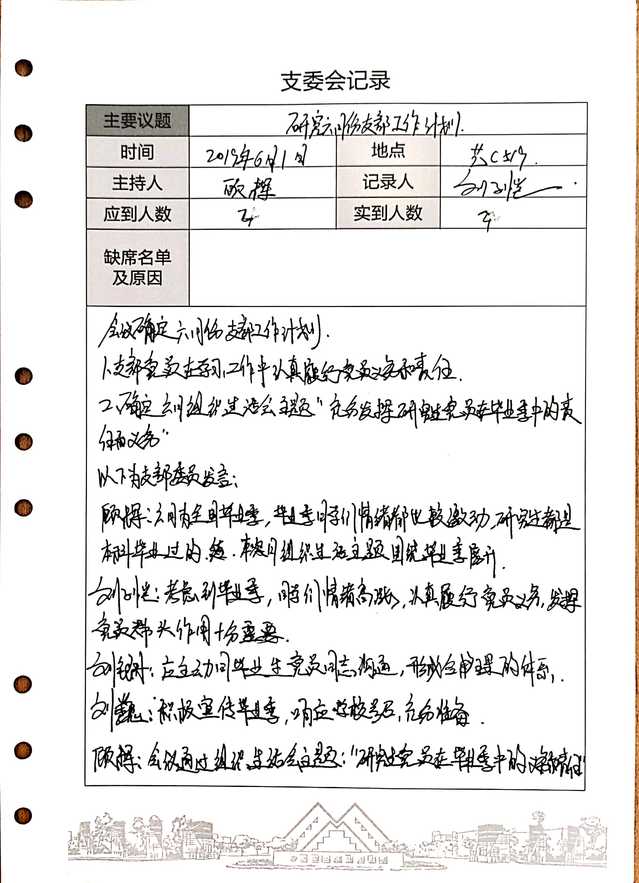 支委会记录
主要议题 研究六月份支部工作计划.
时间 2019年6月1日 地点
主持人 顾桦 记录人
应到人数 实到人数
缺席名单
及原因
会议确定六月份支部工作计划.
1.支部党员在学习、工作中认真履行党员义务和责任.
2.确定六月组织生活会主题“充分发挥研究生党员在毕业季中的责
任和义务”
以下为支部委员发言:
顾桦:六月为全国毕业季,毕业季同学们情绪都比较激动,研究生都是
本科毕业过的,本月组织生活主题围绕毕业季展开.
考虑到毕业季,同学们情绪高涨,认真履行党员义务,发挥
党员带头作用十分重要.
应主动同毕业生党员同志沟通,形成全
积极宣传毕业季,响应学校号召,充分准备.
顾桦:会议通过组织生活会主题:“研究生党员在毕业季中的